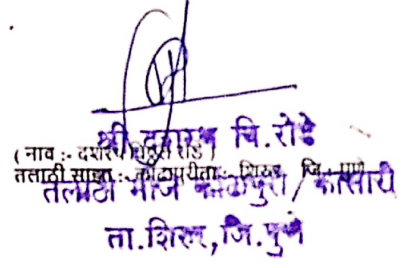 श्री. दशरथ चि. रोडे
( नाव :- दशरथ रोडे )
तलाठी साझा :- शिरूर जि. पुणे
तलाठी / कासारी
ता. शिरूर, जि. पुणे